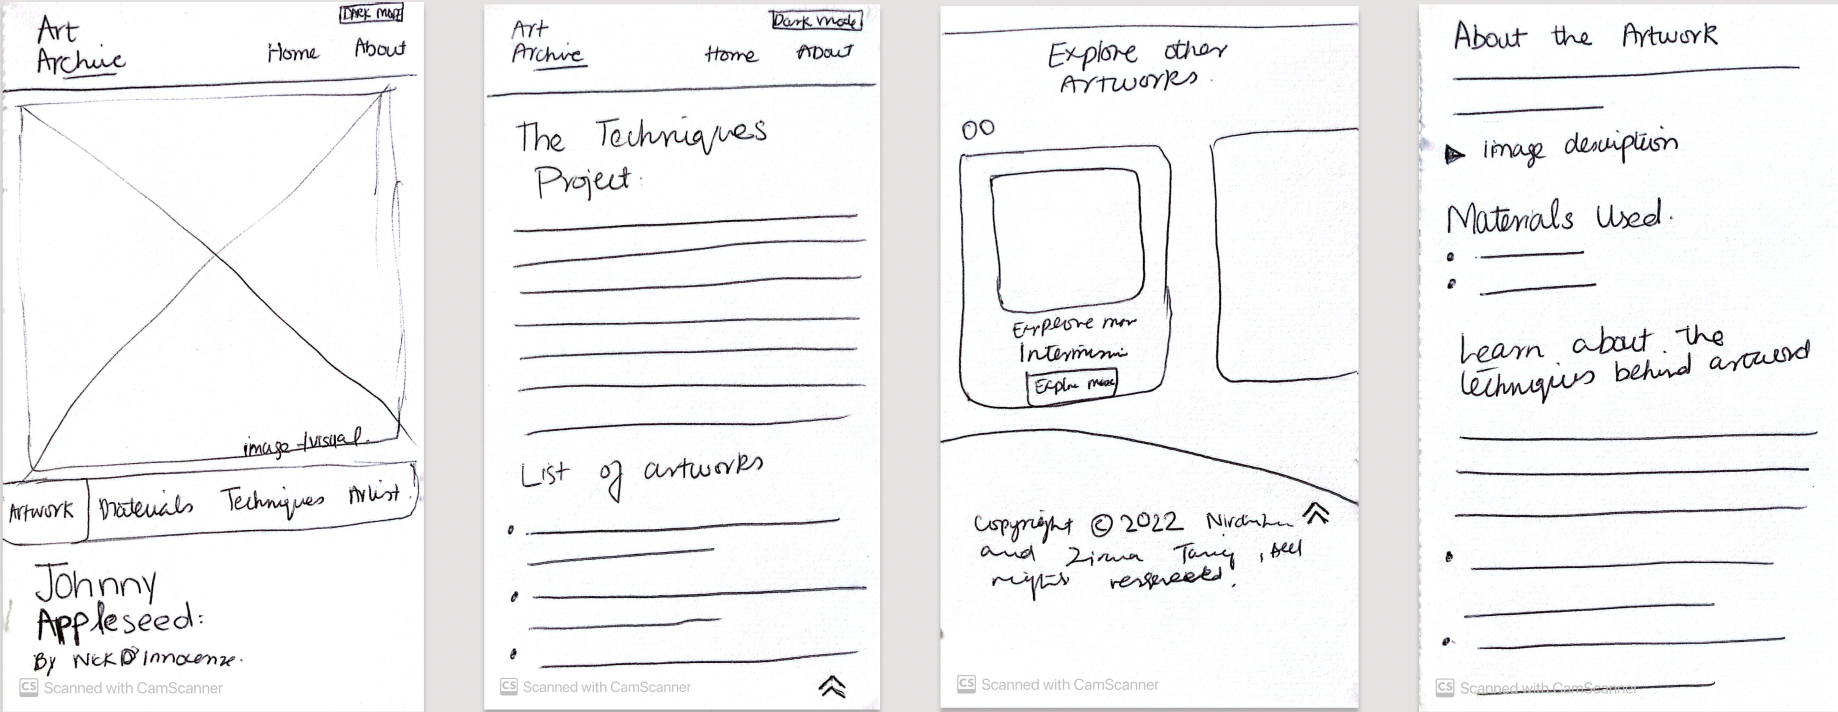 DARK MODE
Art
Archive
Home About
image/visual.
Artwork Materials Techniques Artist
Johnny
Appleseed:
By Nick D'Innocenze.
CS Scanned with CamScanner
Dark Mode
Art
Archive
Home About
The Techniques
Project.
List of artworks
CS Scanned with CamScanner
Explore other
Artworks.
Explore mor
Explore more
Copyright © 2022
and Tang, All
rights
CS Scanned with CamScanner
About the Artwork
image description
Materials Used.
Learn about the
techniques behind
CS Scanned with CamScanner